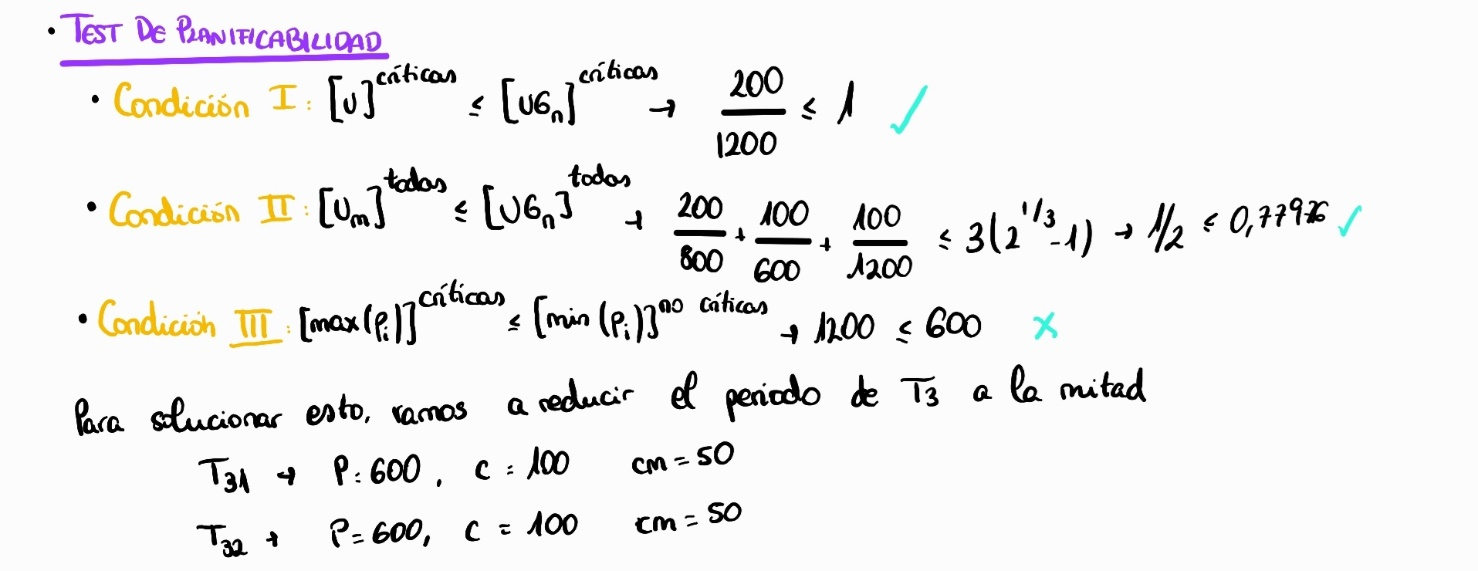 • TEST DE PLANIFICABILIDAD
• Condición I: [U]^críticas ≤ [UGn]^críticas → 200/1200 ≤ 1 ✓
• Condición II: [Um]^todas ≤ [UGn]^todas → 200/800 + 100/600 + 100/1200 ≤ 3(2^1/3 - 1) → 1/2 ≤ 0,77976 ✓
• Condición III: [max(Pi)]^críticas ≤ [min(Pi)]^no críticas → 1200 ≤ 600 ×
Para solucionar esto, vamos a reducir el periodo de T3 a la mitad
T31 → P=600, c = 100 cm = 50
T32 → P=600, c = 100 cm = 50